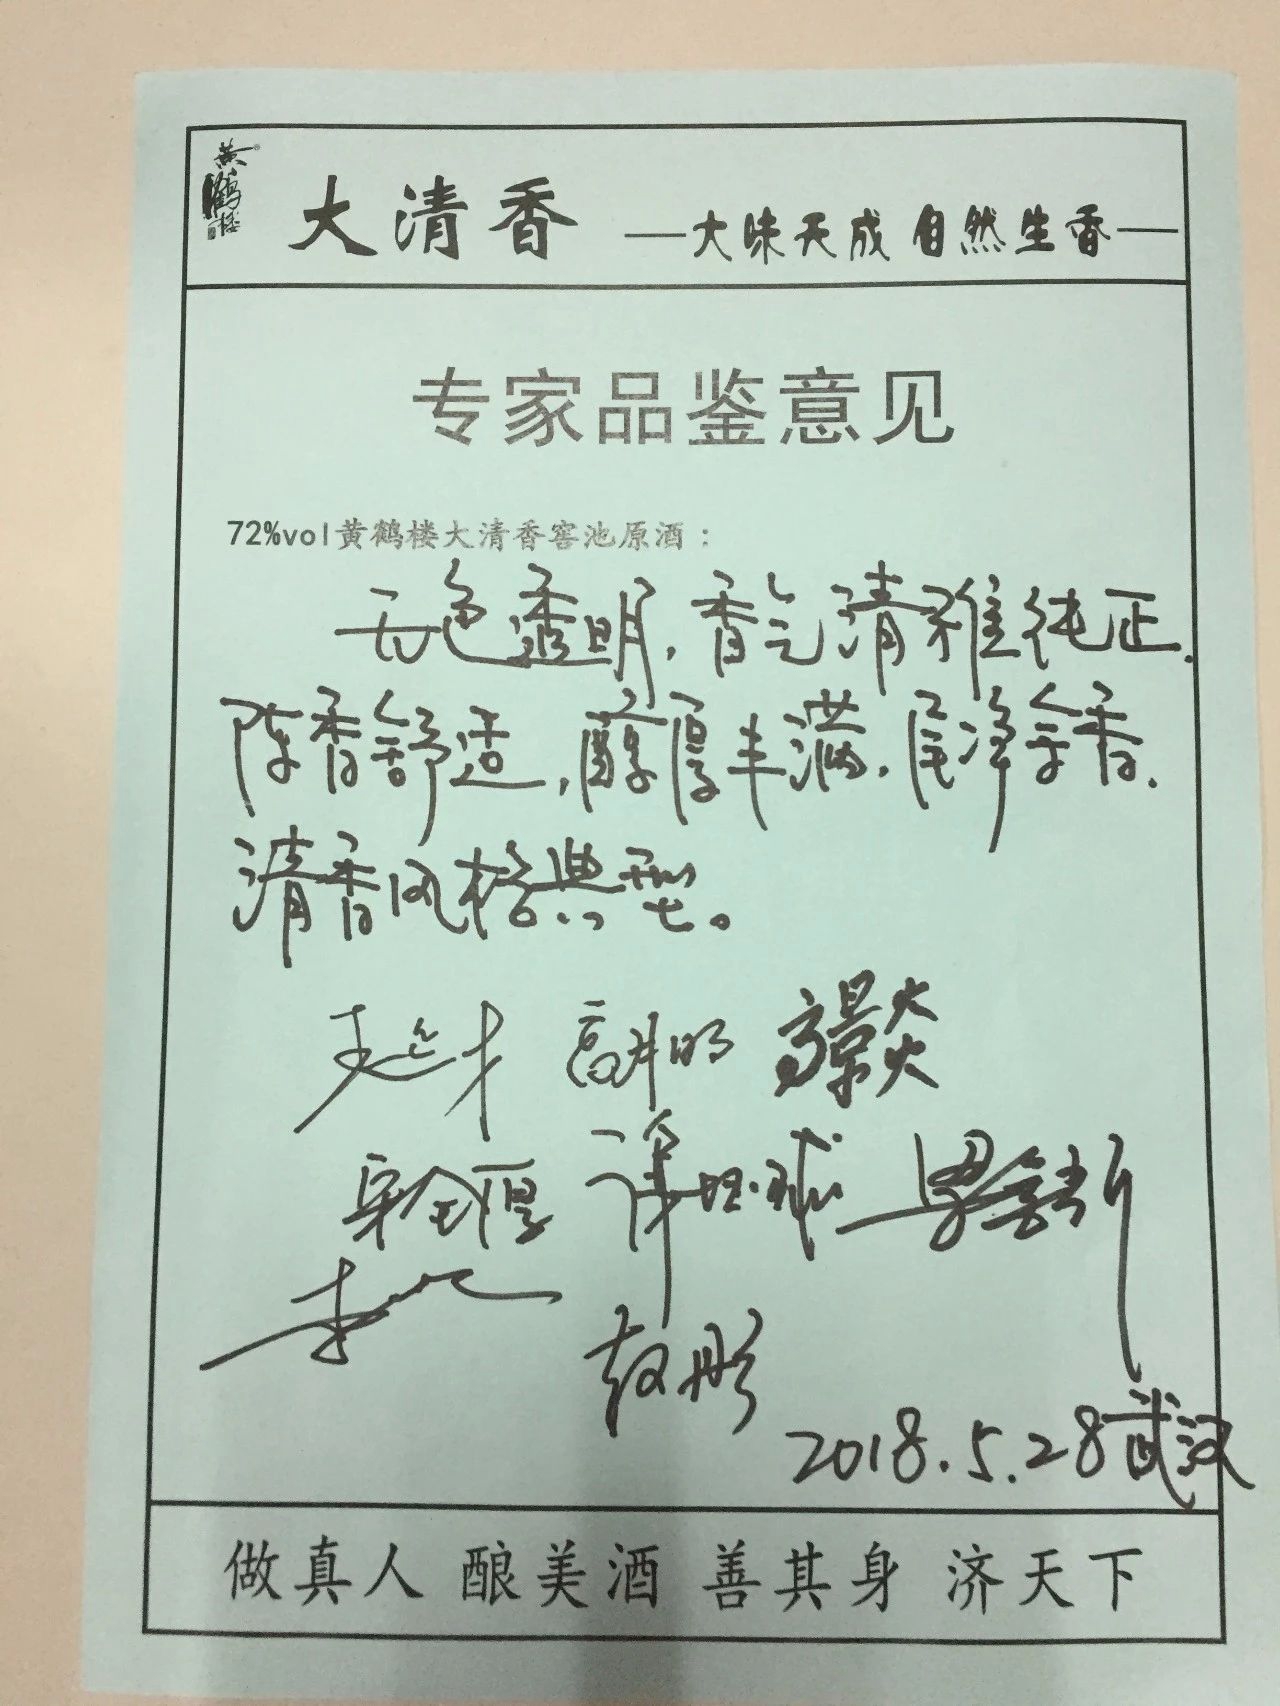 黄鹤楼
大清香 —大味天成 自然生香—
专家品鉴意见
72%vol黄鹤楼大清香窖池原酒：
无色透明，香气清雅纯正，
陈香舒适，醇厚丰满，尾净余香，
清香风格典型。
王延才 高月明 高景炎
宋全厚 谭坦球
赵彤
2018.5.28武汉
做真人 酿美酒 善其身 济天下